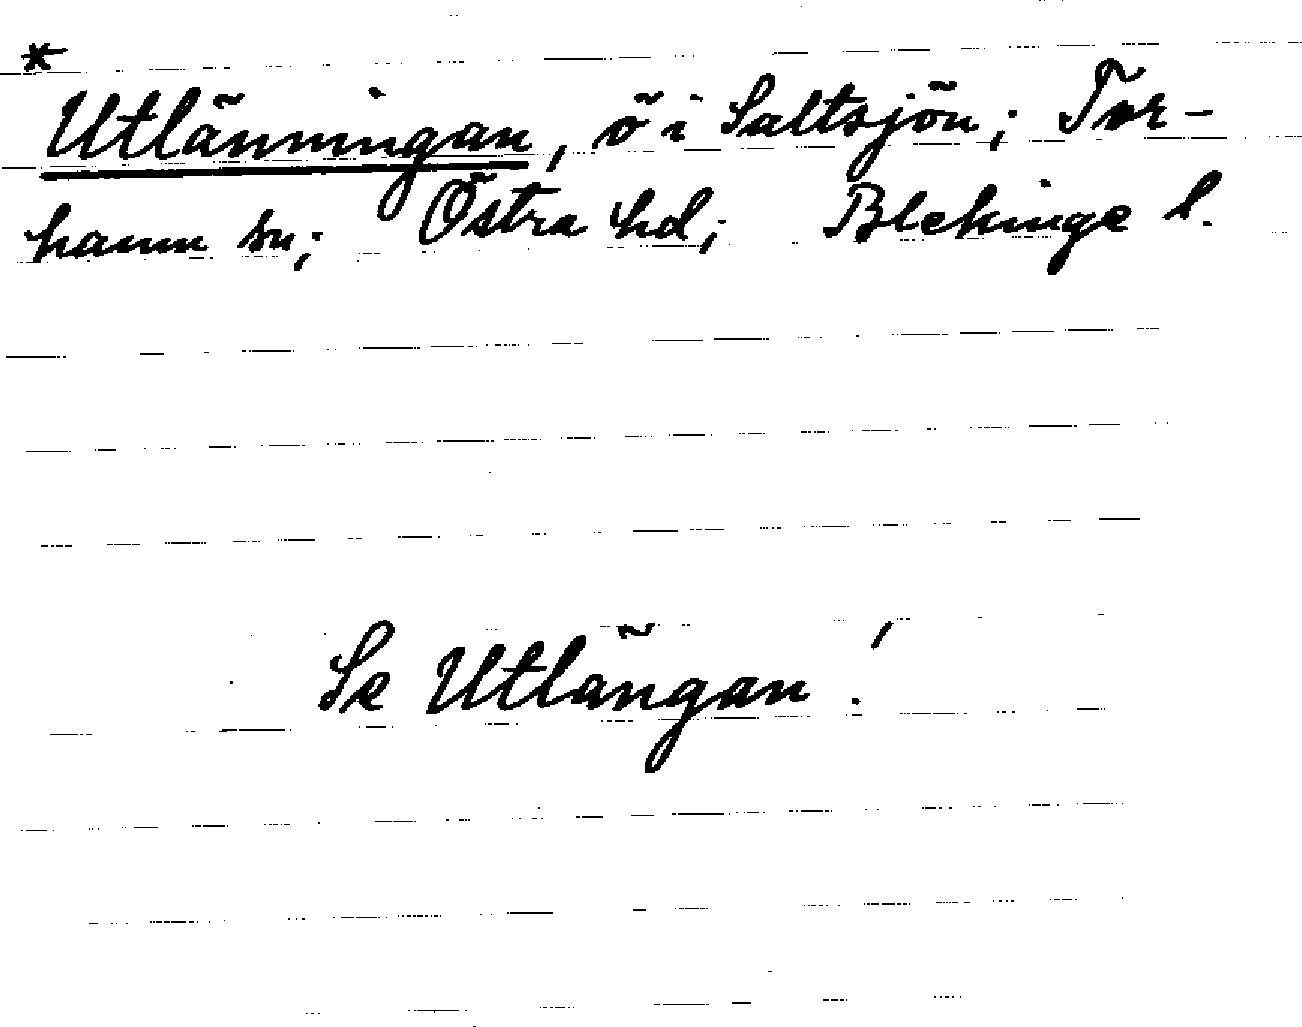 *
Utlänningan, ö i Saltsjön; Tor-
hamn sn; Östra hd; Blekinge l.
Se Utlängan!